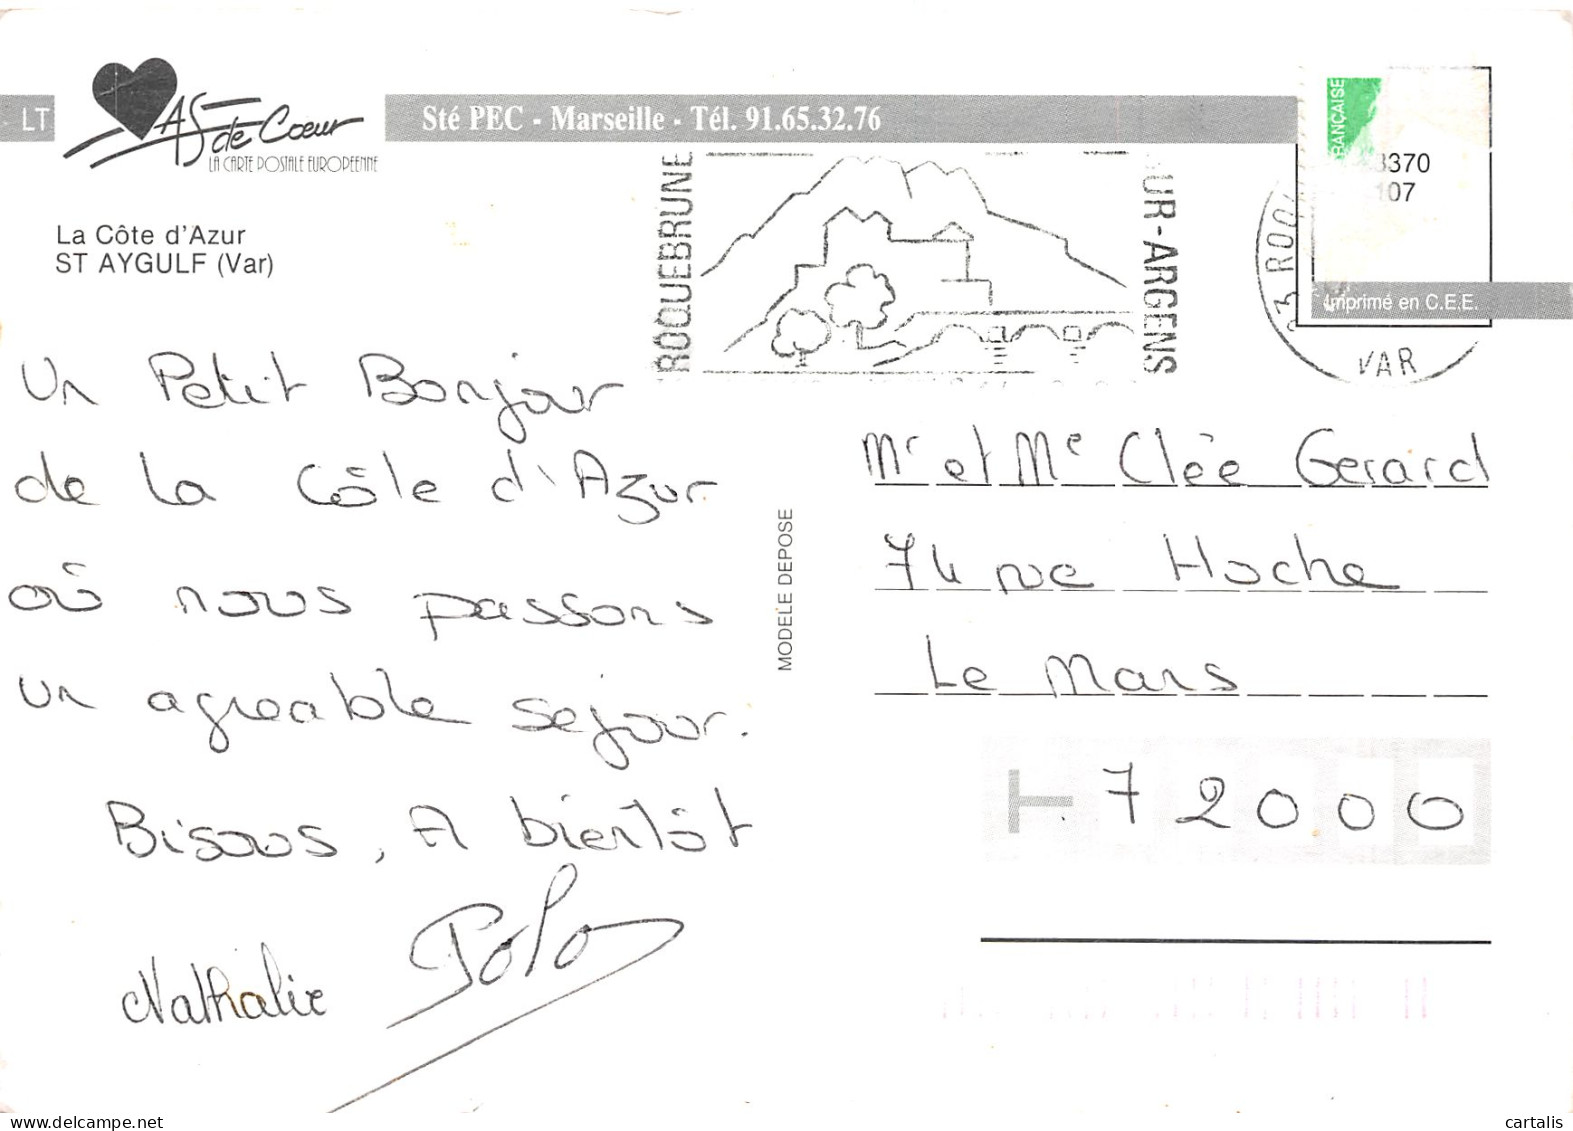 LT
AS de Coeur
LA CARTE POSTALE EUROPEENNE
Sté PEC - Marseille - Tél. 91.65.32.76
La Côte d'Azur
ST AYGULF (Var)
ROQUEBRUNE
UR-ARGENS
RANÇAISE
3370
107
VAR
Imprimé en C.E.E.
Un Petit Bonjour
de la Côte d'Azur
où nous passons
un agreable sejour.
Bisous, A bientôt
Nathalie Polo
MODELE DEPOSE
Mr et Me Clée Gerard
74 rue Hoche
Le Mans
72000
cartalis
delcampe.net